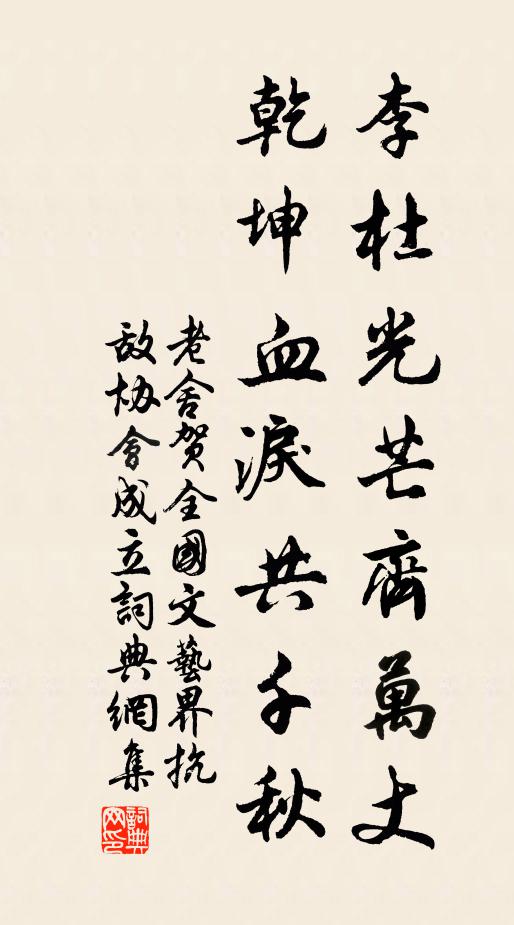 李杜光芒齊萬丈
乾坤血淚共千秋
老舍賀全國文藝界抗
敌协會成立詞典網集
詞典网印